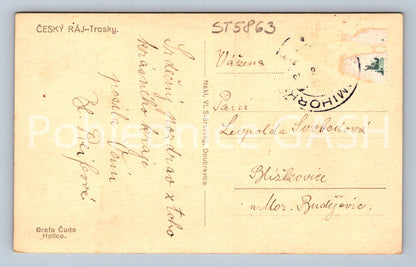 ČESKÝ RÁJ-Trosky.
ST5863
Srdečný pozdrav z toho
krásného kraje
posílá Vám
Vážená
Paní
Leopolda Svobodová
Blížkovice
u Mor. Budějovic
Nakl. Vl.
Doubravice.
MIHORK
Grafo Čuda
Holice.
Pohlednice CASH